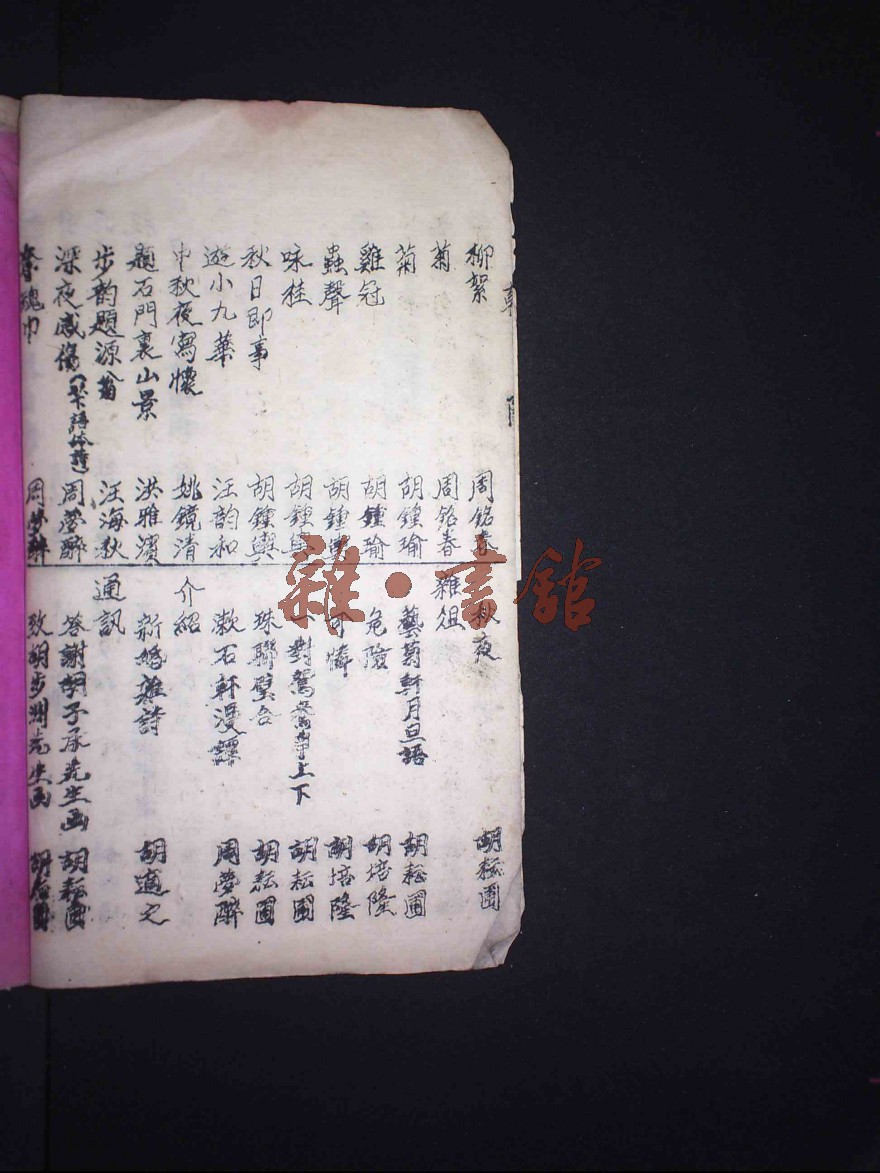 柳絮　周銘春
菊　周銘春
菊　胡鍾瑜
雞冠　胡鍾瑜
蟲聲　胡鍾
咏桂　胡鍾
秋日即事　胡鍾輿
遊小九華　汪韵和
中秋夜寫懷　姚鏡清
題石門裏山景　洪雅濱
步韵題源翁　汪海秋
深夜感傷（以下語体詩）　周夢醉
奪魂巾　周夢醉
秋夜　胡耘圃
雜俎
藝菊軒月旦語　胡耘圃
危險　胡培隆
可憐　胡培隆
一對鴛鴦　上下　胡耘圃
珠聯璧合　胡耘圃
漱石軒漫譚　周夢醉
介紹
新婚雜詩　胡適之
通訊
答謝胡子承先生函　胡耘圃
致胡步洲先生函　胡
雜·書館